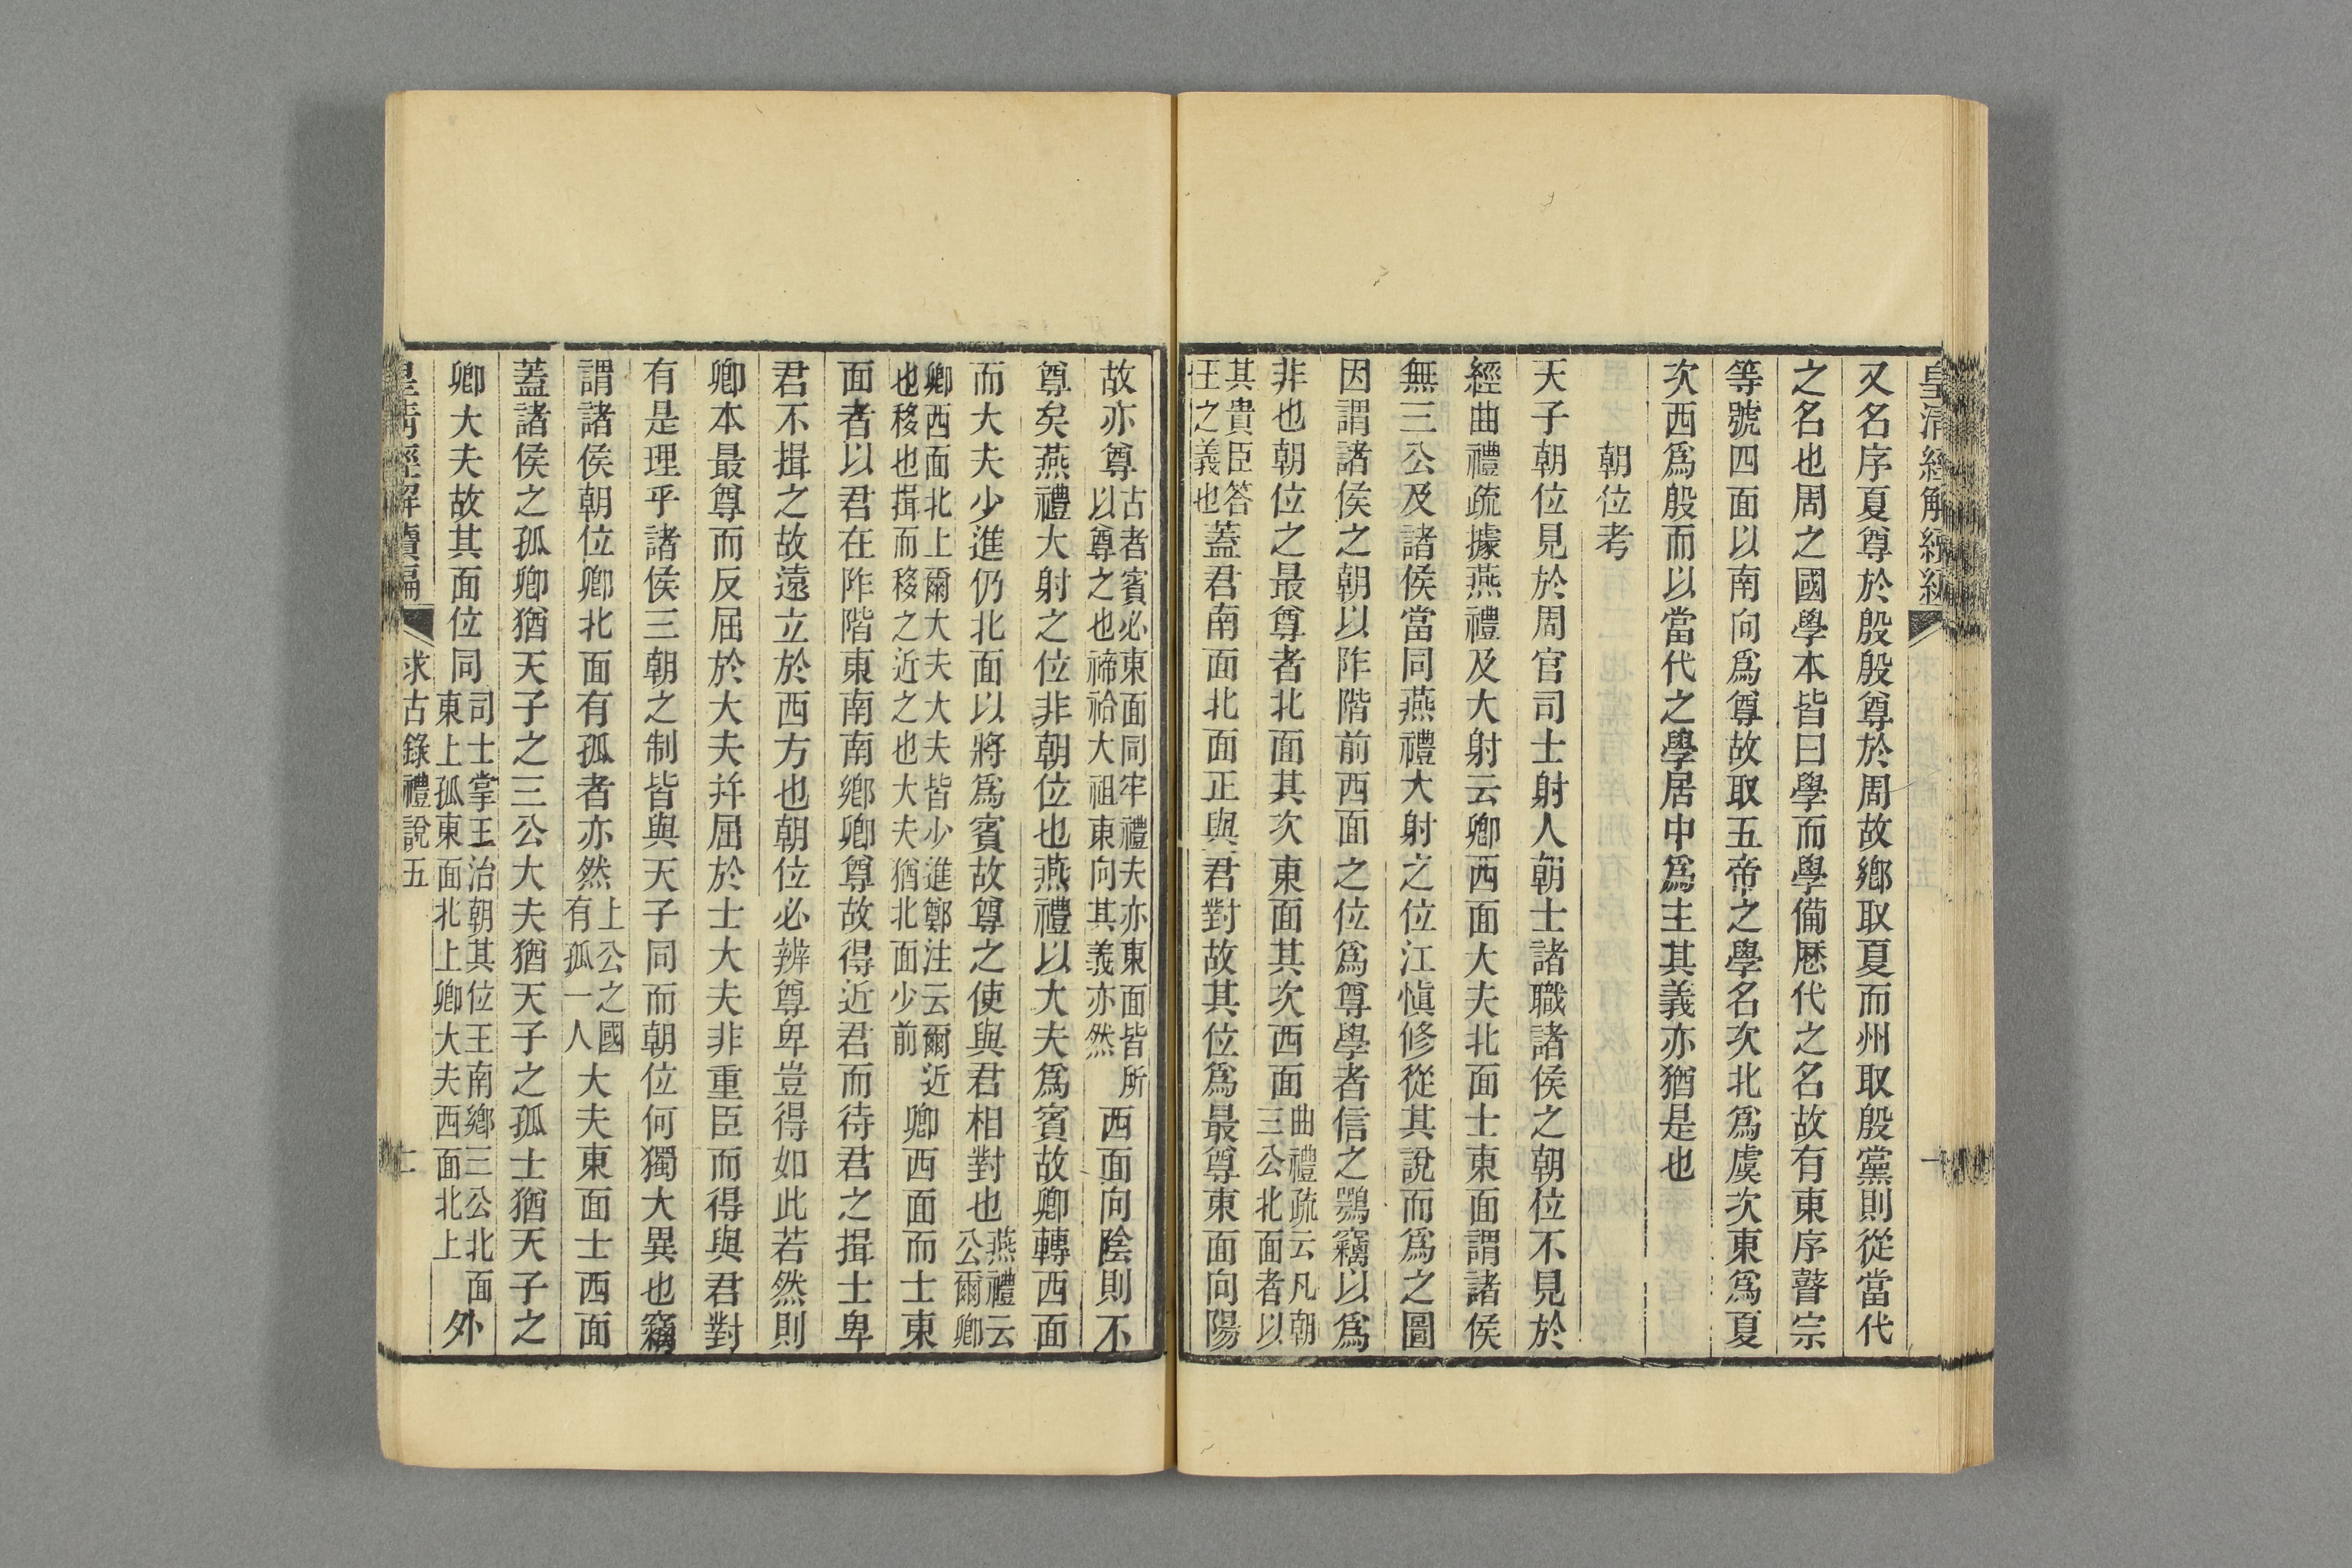 皇清經解續編
又名序夏尊於殷殷尊於周故鄉取夏而州取殷黨則從當代
之名也周之國學本皆曰學而學備歷代之名故有東序瞽宗
等號四面以南向爲尊故取五帝之學名次北爲虞次東爲夏
次西爲殷而以當代之學居中爲主其義亦猶是也
朝位考
天子朝位見於周官司士射人朝士諸職諸侯之朝位不見於
經曲禮疏據燕禮及大射云卿西面大夫北面士東面謂諸侯
無三公及諸侯當同燕禮大射之位江愼修從其說而爲之圖
因謂諸侯之朝以阼階前西面之位爲尊學者信之鶚竊以爲
非也朝位之最尊者北面其次東面其次西面
曲禮疏云凡朝
三公北面者以
其貴臣答
王之義也
蓋君南面北面正與君對故其位爲最尊東面向陽
故亦尊
古者賓必東面同牢禮夫亦東面皆所
以尊之也禘祫大祖東向其義亦然
西面向陰則不
尊矣燕禮大射之位非朝位也燕禮以大夫爲賓故卿轉西面
而大夫少進仍北面以將爲賓故尊之使與君相對也
燕禮云
公爾卿
卿西面北上爾大夫大夫皆少進鄭注云爾近
也移也揖而移之近之也大夫猶北面少前
卿西面而士東
面者以君在阼階東南南鄉卿尊故得近君而待君之揖士卑
君不揖之故遠立於西方也朝位必辨尊卑豈得如此若然則
卿本最尊而反屈於大夫幷屈於士大夫非重臣而得與君對
有是理乎諸侯三朝之制皆與天子同而朝位何獨大異也竊
謂諸侯朝位卿北面有孤者亦然
上公之國
有孤一人
大夫東面士西面
蓋諸侯之孤卿猶天子之三公大夫猶天子之孤士猶天子之
卿大夫故其面位同
司士掌王治朝其位王南鄉三公北面
東上孤東面北上卿大夫西面北上
外
皇清經解續編
求古錄禮說五